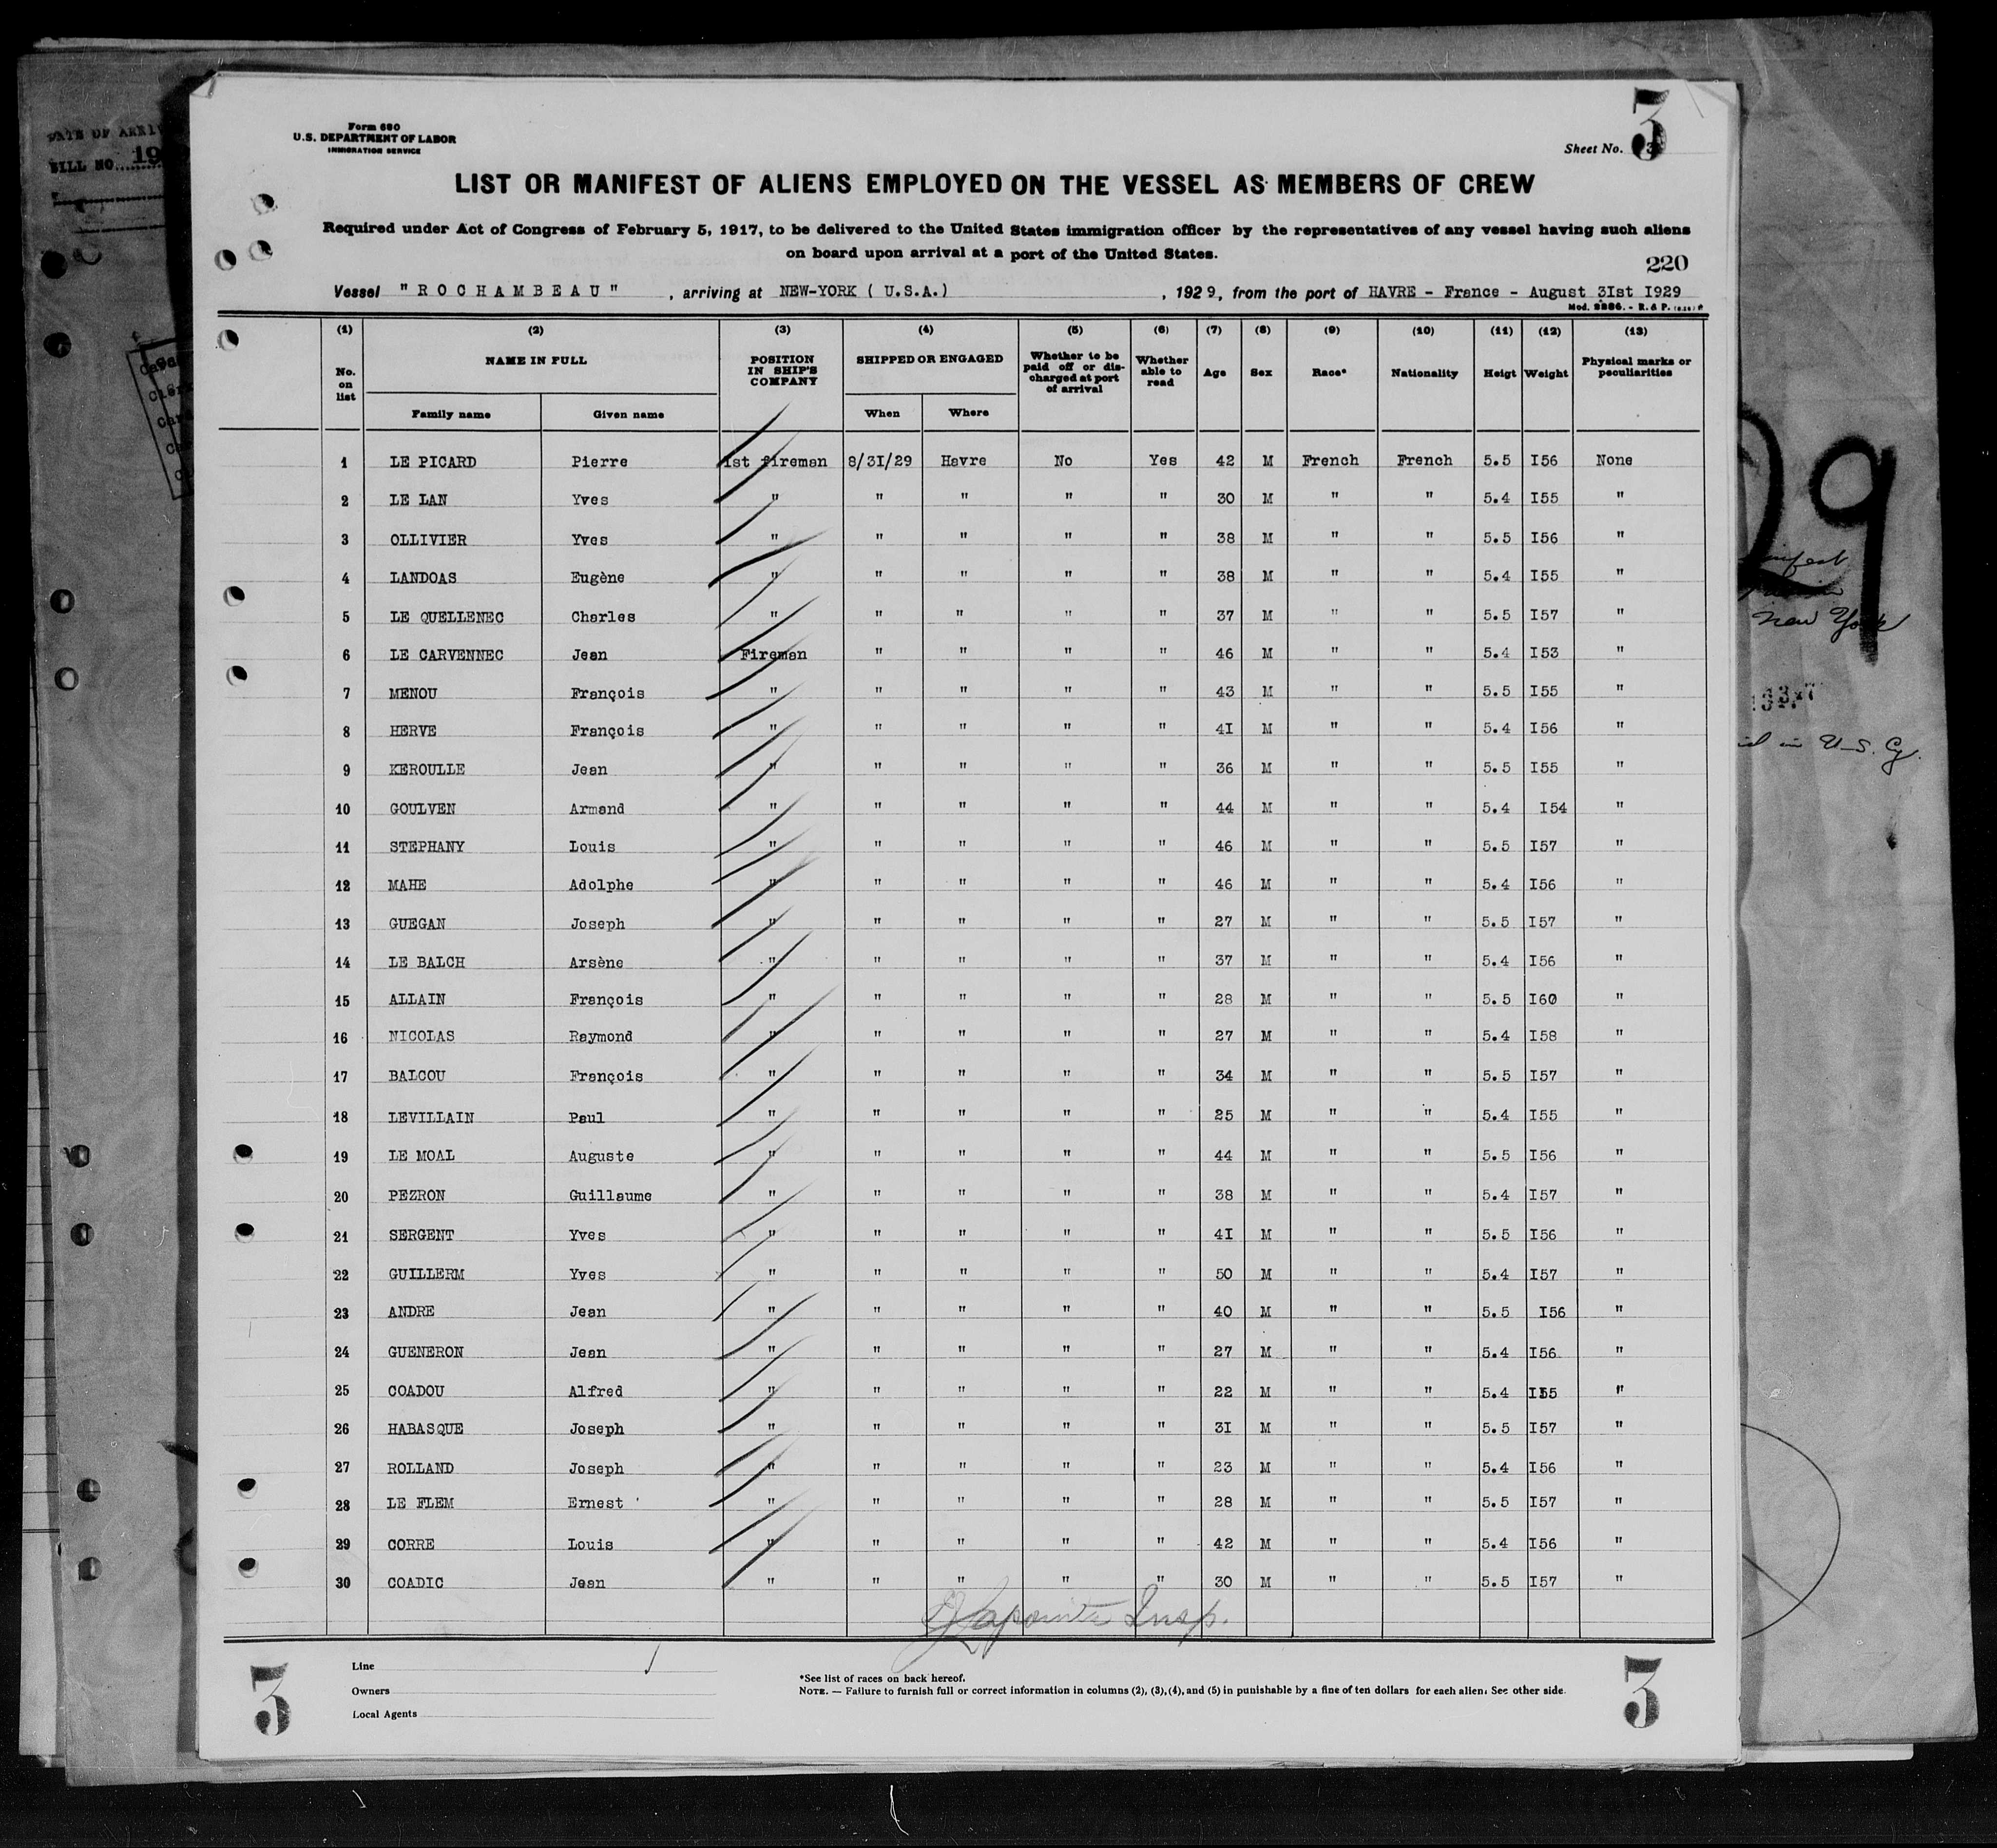 DATE OF ARRI
BILL NO. 19
Form 680
U.S. DEPARTMENT OF LABOR
IMMIGRATION SERVICE
3
Sheet No. 3
LIST OR MANIFEST OF ALIENS EMPLOYED ON THE VESSEL AS MEMBERS OF CREW
Required under Act of Congress of February 5, 1917, to be delivered to the United States immigration officer by the representatives of any vessel having such aliens
on board upon arrival at a port of the United States.
220
Vessel "ROCHAMBEAU", arriving at NEW-YORK ( U.S.A.), 1929, from the port of HAVRE - France - August 3Ist I929
(1) (2) (3) (4) (5) (6) (7) (8) (9) (10) (11) (12) (13)
No. on list NAME IN FULL POSITION IN SHIP'S COMPANY SHIPPED OR ENGAGED Whether to be paid off or discharged at port of arrival Whether able to read Age Sex Race* Nationality Heigt Weight Physical marks or peculiarities
Family name Given name When Where
1 LE PICARD Pierre 1st fireman 8/3I/29 Havre No Yes 42 M French French 5.5 I56 None
2 LE LAN Yves " " " " " 30 M " " 5.4 I55 "
3 OLLIVIER Yves " " " " " 38 M " " 5.5 I56 "
4 LANDOAS Eugène " " " " " 38 M " " 5.4 I55 "
5 LE QUELLENEC Charles " " " " " 37 M " " 5.5 I57 "
6 LE CARVENNEC Jean Fireman " " " " 46 M " " 5.4 I53 "
7 MENOU François " " " " " 43 M " " 5.5 I55 "
8 HERVE François " " " " " 4I M " " 5.4 I56 "
9 KEROULLE Jean " " " " " 36 M " " 5.5 I55 "
10 GOULVEN Armand " " " " " 44 M " " 5.4 I54 "
11 STEPHANY Louis " " " " " 46 M " " 5.5 I57 "
12 MAHE Adolphe " " " " " 46 M " " 5.4 I56 "
13 GUEGAN Joseph " " " " " 27 M " " 5.5 I57 "
14 LE BALCH Arsène " " " " " 37 M " " 5.4 I56 "
15 ALLAIN François " " " " " 28 M " " 5.5 I60 "
16 NICOLAS Raymond " " " " " 27 M " " 5.4 I58 "
17 BALCOU François " " " " " 34 M " " 5.5 I57 "
18 LEVILLAIN Paul " " " " " 25 M " " 5.4 I55 "
19 LE MOAL Auguste " " " " " 44 M " " 5.5 I56 "
20 PEZRON Guillaume " " " " " 38 M " " 5.4 I57 "
21 SERGENT Yves " " " " " 4I M " " 5.5 I56 "
22 GUILLERM Yves " " " " " 50 M " " 5.4 I57 "
23 ANDRE Jean " " " " " 40 M " " 5.5 I56 "
24 GUENERON Jean " " " " " 27 M " " 5.4 I56 "
25 COADOU Alfred " " " " " 22 M " " 5.4 I55 "
26 HABASQUE Joseph " " " " " 3I M " " 5.5 I57 "
27 ROLLAND Joseph " " " " " 23 M " " 5.4 I56 "
28 LE FLEM Ernest " " " " " 28 M " " 5.5 I57 "
29 CORRE Louis " " " " " 42 M " " 5.4 I56 "
30 COADIC Jean " " " " " 30 M " " 5.5 I57 "
Lapointe Insp.
Line
Owners
Local Agents
*See list of races on back hereof.
NOTE. — Failure to furnish full or correct information in columns (2), (3), (4), and (5) in punishable by a fine of ten dollars for each alien. See other side.
3
3
New York
in U.S. Cy.